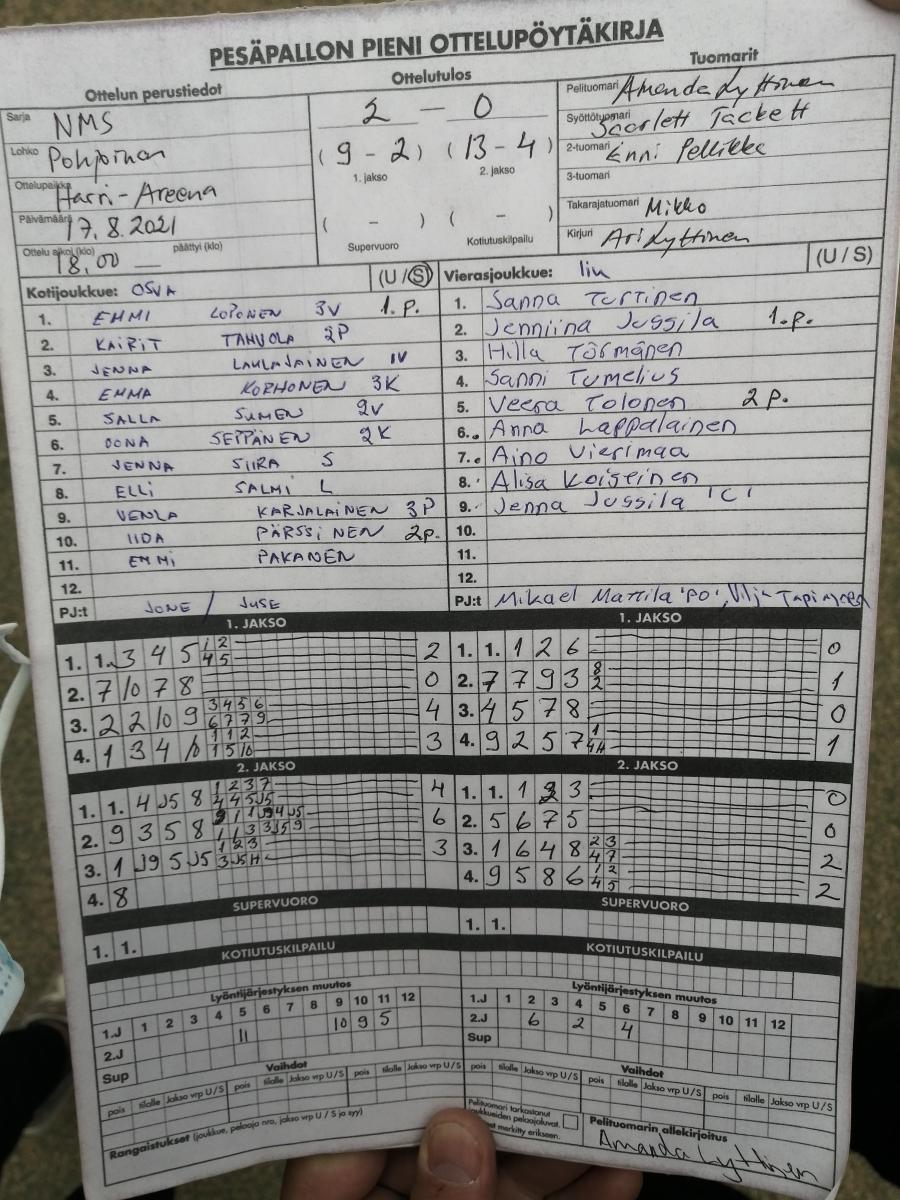 PESÄPALLON PIENI OTTELUPÖYTÄKIRJA
Ottelun perustiedot
Ottelutulos
Tuomarit
Sarja NMS
Lohko Pohjoinen
Ottelupaikka Harri-Areena
Päivämäärä 17.8.2021
Ottelu alkoi (klo) päättyi (klo)
18.00 —
2 — 0
(9 - 2) (13 - 4)
1. jakso 2. jakso
( - ) ( - )
Supervuoro Kotiutuskilpailu
Pelituomari Amanda Lyttinen
Syöttötuomari Scarlett Tackett
2-tuomari Enni Pellikka
3-tuomari
Takarajatuomari Mikko
Kirjuri Ari Lyttinen
Kotijoukkue: OSVA (U / S)
1. EMMI LOPONEN 3V 1.p.
2. KAIRIT TAHVOLA 2P
3. JENNA LAULAJAINEN IV
4. EMMA KORHONEN 3K
5. SALLA SUMEN 2V
6. OONA SEPPÄNEN 2K
7. JENNA SIIRA S
8. ELLI SALMI L
9. VENLA KARJALAINEN 3P
10. IIDA PÄRSSINEN 2p.
11. EMMI PAKANEN
12.
PJ:t JONE / JUSE
Vierasjoukkue: Iin (U / S)
1. Sanna Turtinen
2. Jenniina Jussila 1.p.
3. Hilla Törmänen
4. Sanni Tumelius
5. Veera Tolonen 2 p.
6. Anna Lappalainen
7. Aino Vierimaa
8. Alisa Koiseinen
9. Jenna Jussila 'C'
10.
11.
12.
PJ:t Mikael Mattila 'PO',
1. JAKSO
1. 1. 3 4 5 1 2 4 5 2
2. 7 10 7 8 0
3. 2 2 10 9 3 4 5 6 6 7 7 9 4
4. 1 3 4 1 1 2 1 5 10 3
1. JAKSO
1. 1. 1 2 6 0
2. 7 7 9 3 8 2 1
3. 4 5 7 8 0
4. 9 2 5 7 1
2. JAKSO
1. 1. 4 J5 8 1 2 3 7 4
2. 9 3 5 8 6
3. 1 J9 5 J5 1 2 3 3
4. 8
2. JAKSO
1. 1. 1 3 0
2. 5 6 7 5 0
3. 1 6 4 8 2 3 4 7 2
4. 9 5 8 6 1 2 4 5 2
SUPERVUORO
1. 1.
SUPERVUORO
1. 1.
KOTIUTUSKILPAILU
KOTIUTUSKILPAILU
Lyöntijärjestyksen muutos
1.J 1 2 3 4 5 6 7 8 9 10 11 12
2.J 11 10 9 5
Sup
Lyöntijärjestyksen muutos
1.J 1 2 3 4 5 6 7 8 9 10 11 12
2.J 6 2 4
Sup
Vaihdot
pois tilalle Jakso vrp U/S pois tilalle Jakso vrp U/S pois tilalle Jakso vrp U/S
Vaihdot
pois tilalle Jakso vrp U/S pois tilalle Jakso vrp U/S pois tilalle Jakso vrp U/S
Rangaistukset (joukkue, pelaaja nro, jakso vrp U / S ja syy)
Pelituomari tarkastanut
joukkueiden pelaajaluvat.
merkitty erikseen.
Pelituomarin allekirjoitus
Amanda Lyttinen